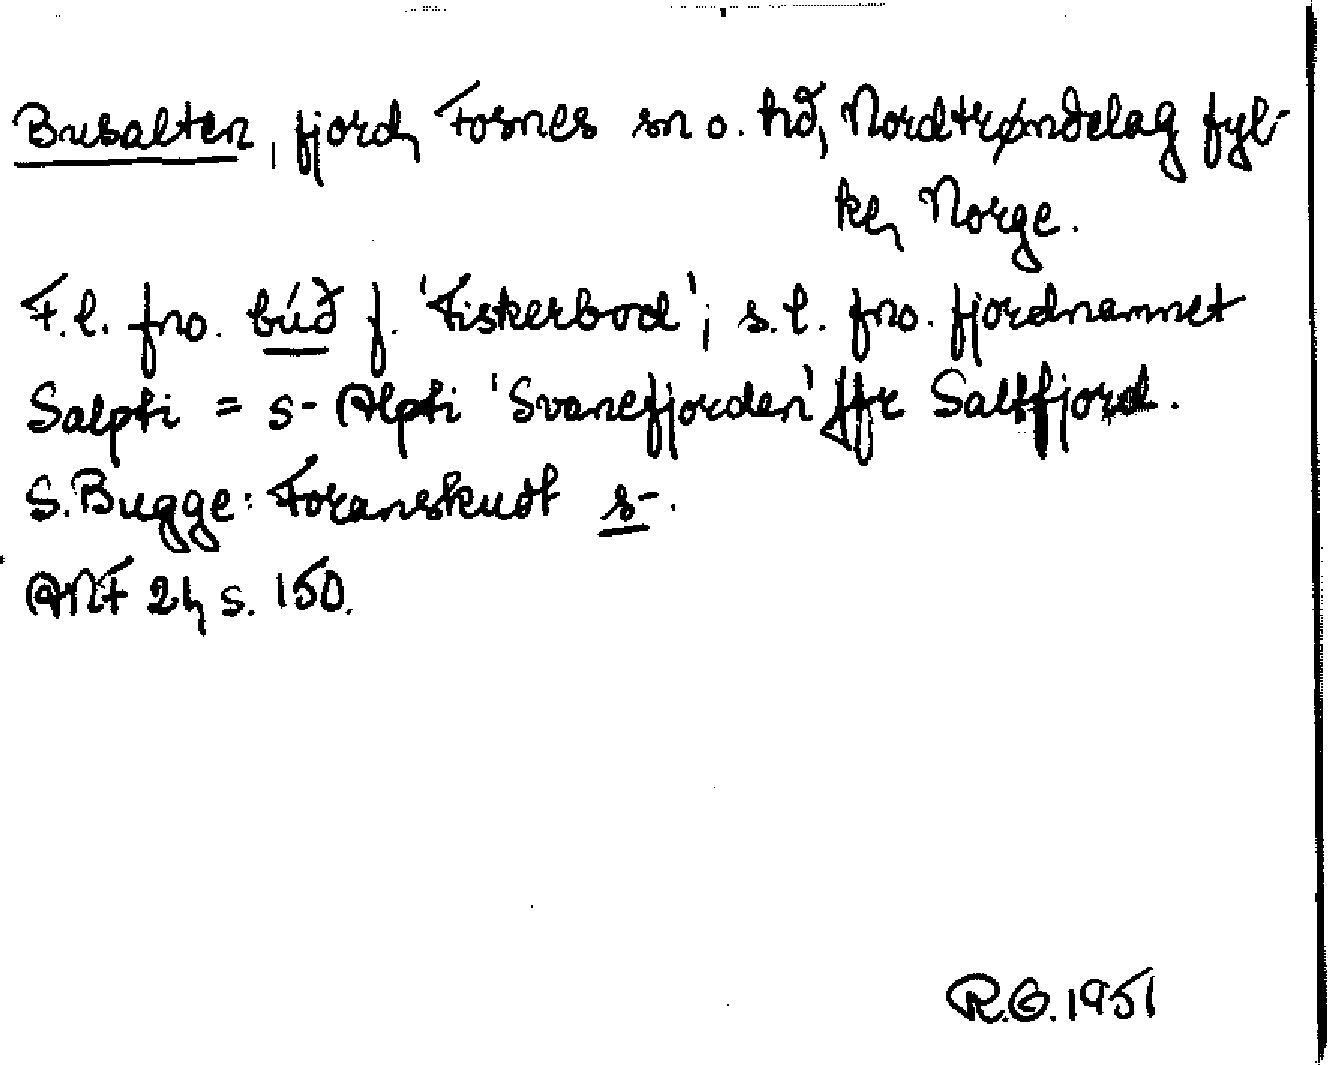 Busalten, fjord, Fosnes sn o. hd, Nordtrøndelag fyl-
ke, Norge.
F.l. fno. búð f. 'Fiskerbod'; s.l. fno. fjordnamnet
Salpti = s- Alpti 'Svanefjorden' jfr Saltfjord.
S. Bugge: Foranskudt s-.
ANF 21, s. 150.
R.G. 1951